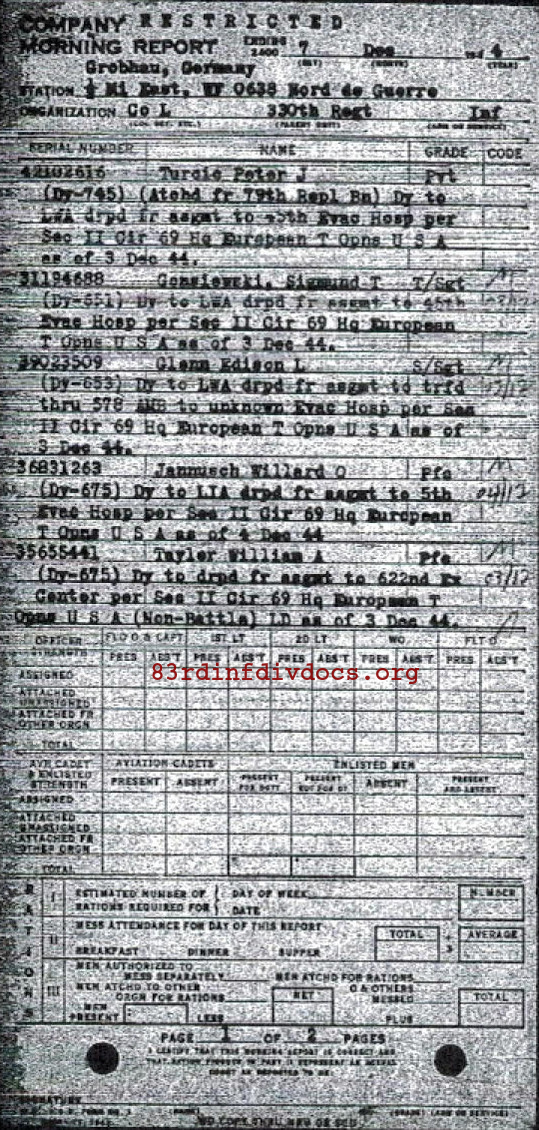 COMPANY RESTRICTED
MORNING REPORT ENDING 2400 7 Dec 194 4
(DAY) (MONTH) (YEAR)
Grobhau, Germany
STATION ½ Mi East, WF 0638 Nord de Guerre
ORGANIZATION Co L 330th Regt Inf
(PARENT UNIT) (ARM OR SERVICE)
SERIAL NUMBER NAME GRADE CODE
42102616 Turcic Peter J Pvt
(Dy-745) (Atchd fr 79th Repl Bn) Dy to
LWA drpd fr asgmt to 45th Evac Hosp per
Sec II Cir 69 Hq European T Opns U S A
as of 3 Dec 44.
31194688 Sigmund T T/Sgt
(Dy-651) Dy to LWA drpd fr asgmt to 45th
Evac Hosp per Sec II Cir 69 Hq European
T Opns U S A as of 3 Dec 44.
39023509 Glenn Edison L S/Sgt
(Dy-653) Dy to LWA drpd fr asgmt to trfd
thru 578 AMB to unknown Evac Hosp per Sec
II Cir 69 Hq European T Opns U S A as of
3 Dec 44.
36831263 Jannusch Willard O Pfc
(Dy-675) Dy to LIA drpd fr asgmt to 5th
Evac Hosp per Sec II Cir 69 Hq European
T Opns U S A as of 4 Dec 44
35655441 Tayler William A Pfc
(Dy-675) Dy to drpd fr asgmt to 622nd Ex
Center per Sec II Cir 69 Hq European T
Opns U S A (Non-Battle) LD as of 3 Dec 44.
OFFICER STRENGTH FLD O & CAPT 1ST LT 2D LT WO FLT O
PRES ABS'T PRES ABS'T PRES ABS'T PRES ABS'T PRES ABS'T
83rdinfdivdocs.org
ASSIGNED
ATTACHED UNASSIGNED
ATTACHED FR OTHER ORGN
TOTAL
AVN CADET & ENLISTED STRENGTH AVIATION CADETS ENLISTED MEN
PRESENT ABSENT PRESENT FOR DUTY PRESENT NOT FOR DY ABSENT PRESENT AND ABSENT
ASSIGNED
ATTACHED UNASSIGNED
ATTACHED FR OTHER ORGN
TOTAL
RATIONS
I ESTIMATED NUMBER OF RATIONS REQUIRED FOR DAY OF WEEK DATE NUMBER
II MESS ATTENDANCE FOR DAY OF THIS REPORT
BREAKFAST DINNER SUPPER TOTAL 3 AVERAGE
MEN AUTHORIZED TO MESS SEPARATELY MEN ATCHD FOR RATIONS
III MEN ATCHD TO OTHER ORGN FOR RATIONS NET O & OTHERS MESSED TOTAL
MEN PRESENT LESS PLUS
PAGE 1 OF 2 PAGES
I CERTIFY THAT THIS MORNING REPORT IS CORRECT AND
SIGNATURE